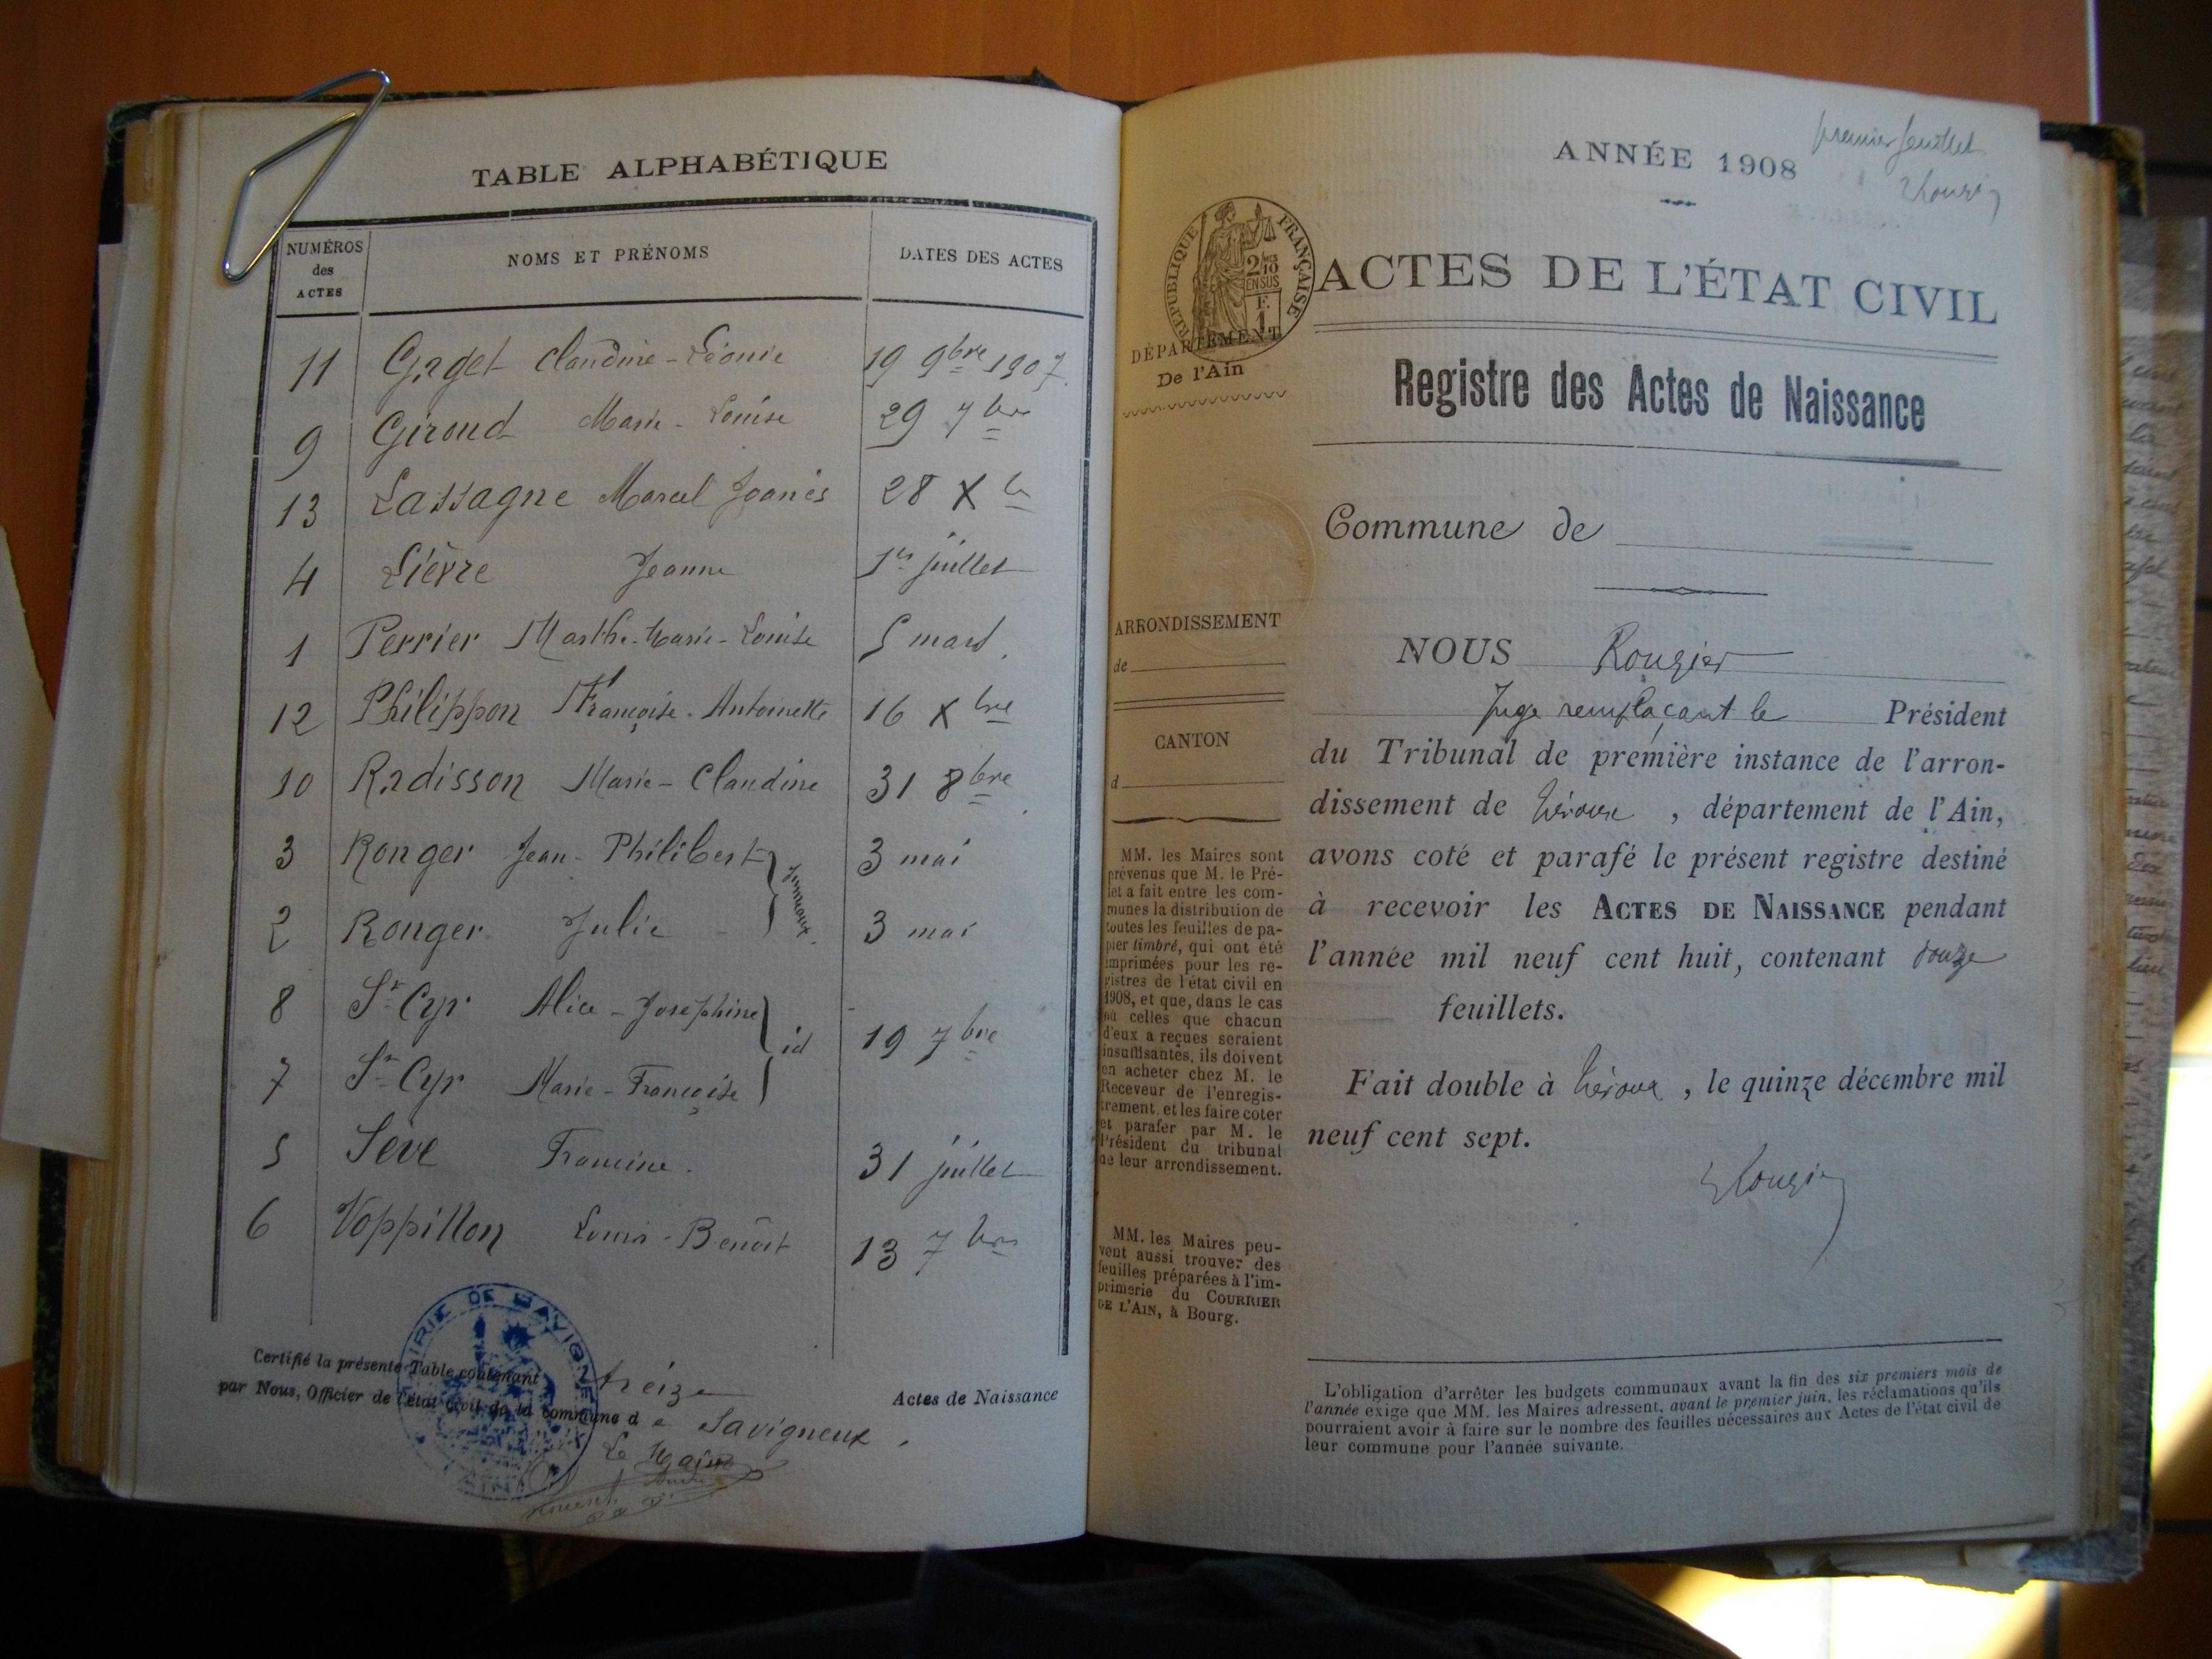 TABLE ALPHABÉTIQUE
NUMÉROS
des
ACTES
NOMS ET PRÉNOMS
DATES DES ACTES
11 Gaget Claudine-Léonie 19 9bre 1907
9 Giroud Marie-Louise 29 7bre
13 Lassagne Marcel Joanès 28 Xbre
4 Lièvre Jeanne 1er juillet
1 Perrier Marthe-Marie-Louise 5 mars
12 Philippon Françoise-Antoinette 16 Xbre
10 Radisson Marie-Claudine 31 8bre
3 Ronger Jean-Philibert 3 mai
jumeaux
2 Ronger Julie 3 mai
8 St Cyr Alice-Joséphine
id 19 7bre
7 St Cyr Marie-Françoise
5 Sève Francine 31 juillet
6 Voppillon Louis-Benoît 13 7bre
Certifié la présente Table contenant treize Actes de Naissance
par Nous, Officier de l'état civil de la commune de Savigneux.
Le Maire
premier feuillet
Rougier
ANNÉE 1908
RÉPUBLIQUE FRANÇAISE
2/10
EN SUS
F.
1
ACTES DE L'ÉTAT CIVIL
DÉPARTEMENT
De l'Ain
Registre des Actes de Naissance
Commune de
ARRONDISSEMENT
de
CANTON
d
NOUS Rougier
Juge remplaçant le Président
du Tribunal de première instance de l'arron-
dissement de Trévoux, département de l'Ain,
avons coté et parafé le présent registre destiné
à recevoir les ACTES DE NAISSANCE pendant
l'année mil neuf cent huit, contenant douze
feuillets.
Fait double à Trévoux, le quinze décembre mil
neuf cent sept.
Rougier
MM. les Maires sont
prévenus que M. le Pré-
fet a fait entre les com-
munes la distribution de
toutes les feuilles de pa-
pier timbré, qui ont été
imprimées pour les re-
gistres de l'état civil en
1908, et que, dans le cas
où celles que chacun
d'eux a reçues seraient
insuffisantes, ils doivent
en acheter chez M. le
Receveur de l'enregis-
trement, et les faire coter
et parafer par M. le
Président du tribunal
de leur arrondissement.
MM. les Maires peu-
vent aussi trouver des
feuilles préparées à l'im-
primerie du COURRIER
DE L'AIN, à Bourg.
L'obligation d'arrêter les budgets communaux avant la fin des six premiers mois de
l'année exige que MM. les Maires adressent, avant le premier juin, les réclamations qu'ils
pourraient avoir à faire sur le nombre des feuilles nécessaires aux Actes de l'état civil de
leur commune pour l'année suivante.